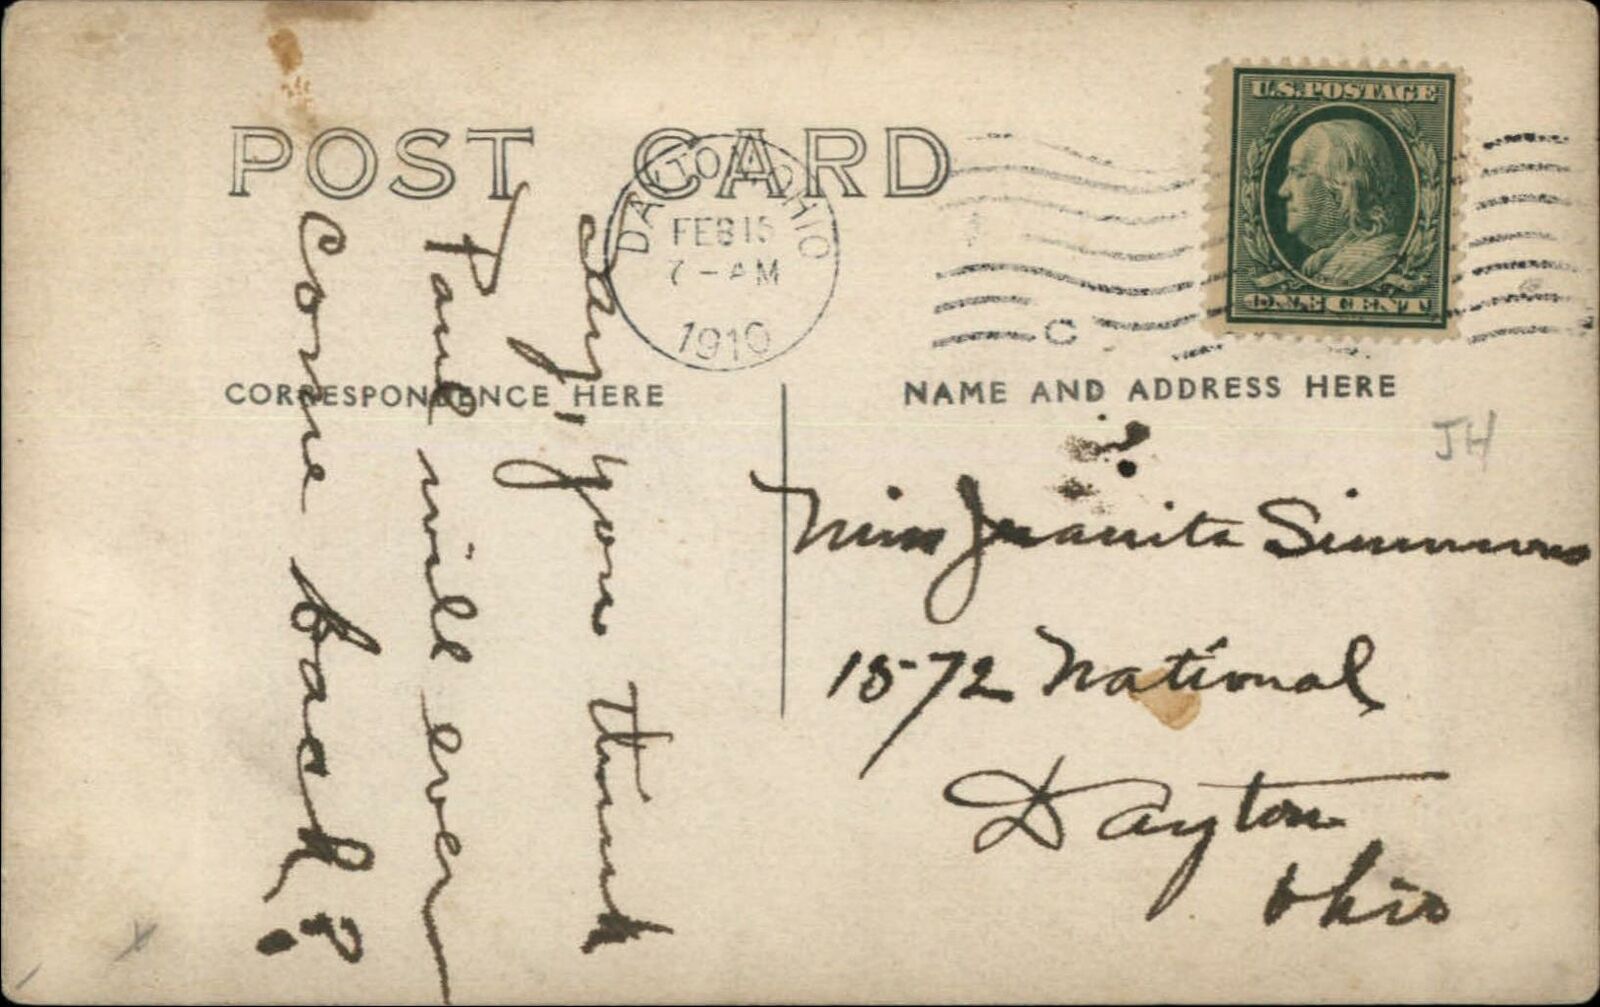 POST CARD
DAYTON, OHIO
FEB 15
7-AM
1910
C
U.S. POSTAGE
ONE CENT
CORRESPONDENCE HERE
NAME AND ADDRESS HERE
JH
Say, you think
Paul will ever
Come back?
Miss Juanita Simmons
1572 National
Dayton
Ohio